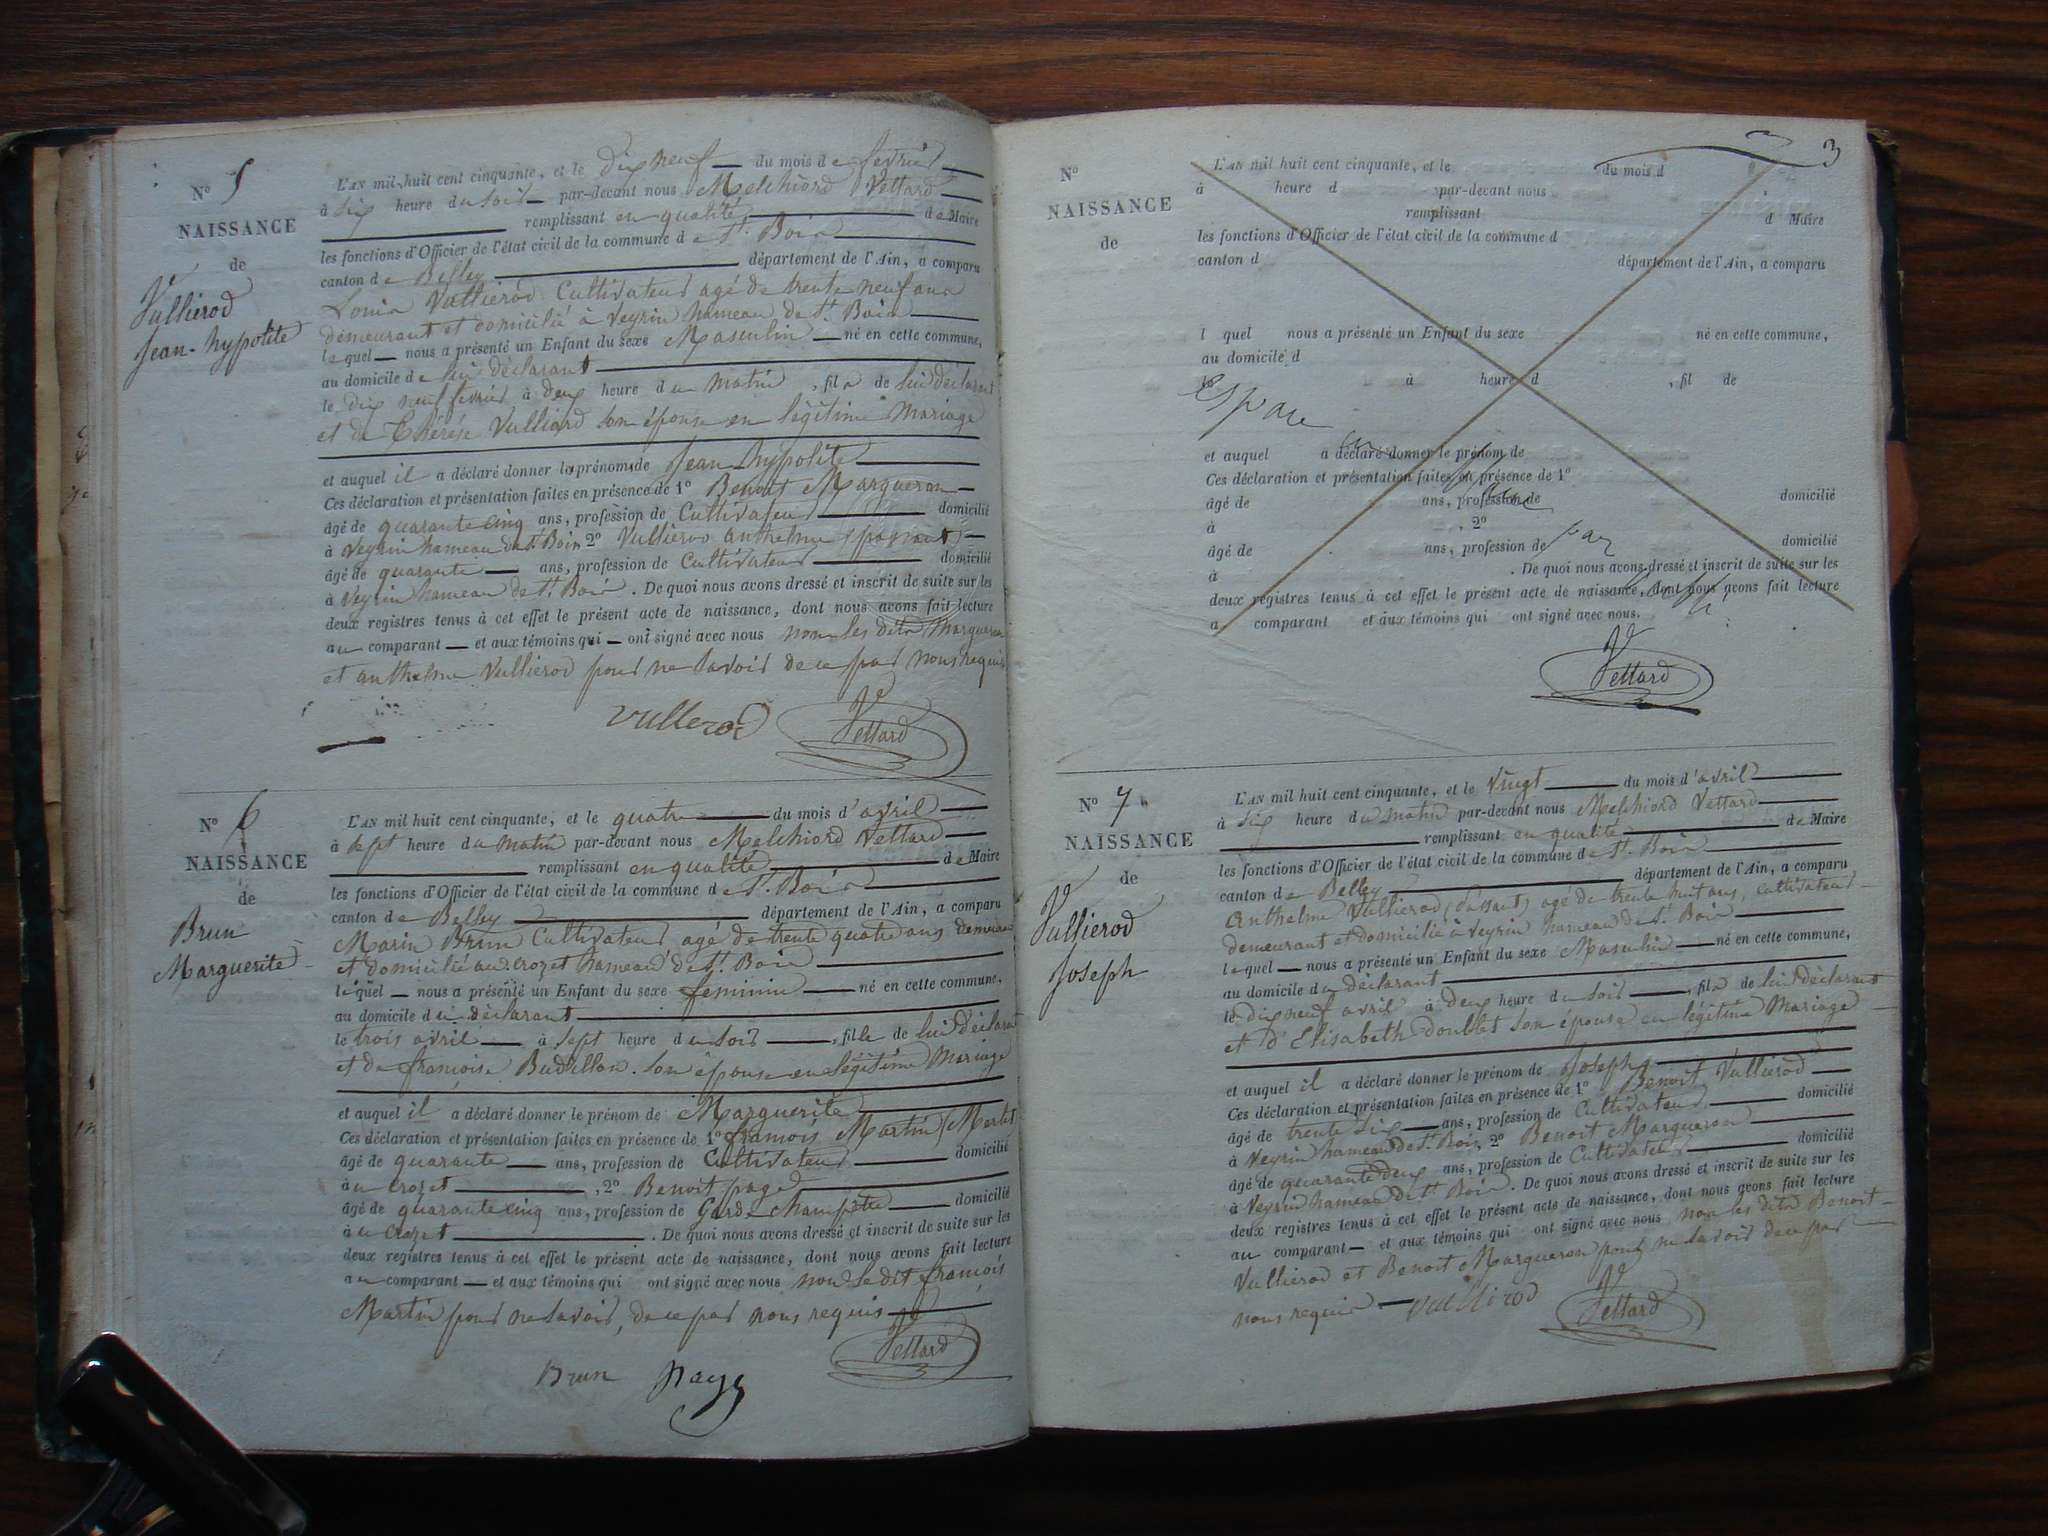 N° 5
NAISSANCE
de
Vullierod
Jean-hypolite
L'AN mil huit cent cinquante, et le dix neuf du mois de fevrier
à six heure du soir par-devant nous Melchiord Vettard
remplissant en qualité de Maire
les fonctions d'Officier de l'état civil de la commune de St. Bois
canton de Belley département de l'Ain, a comparu
Louis Vullierod Cultivateur agé de trente neuf ans
demeurant et domicilié à Veyrin hameau de St. Bois
lequel nous a présenté un Enfant du sexe Masculin né en cette commune,
au domicile de lui déclarant
le dix neuf fevrier à deux heure du matin, fils de lui déclarant
et de Thérése Vulliard son épouse en légitime Mariage
et auquel il a déclaré donner le prénom de Jean hypolite
Ces déclaration et présentation faites en présence de 1° Benoit Margueron
âgé de quarante cinq ans, profession de Cultivateur domicilié
à Veyrin hameau de St. Bois 2° Vullierod anthelme
âgé de quarante ans, profession de Cultivateur domicilié
à Veyrin hameau de St. Bois. De quoi nous avons dressé et inscrit de suite sur les
deux registres tenus à cet effet le présent acte de naissance, dont nous avons fait lecture
au comparant et aux témoins qui ont signé avec nous non les dits Margueron
et anthelme Vullierod pour ne savoir de ce par nous requis
Vullerod Vettard
N° 6
NAISSANCE
de
Brun
Marguerite
L'AN mil huit cent cinquante, et le quatre du mois d'avril
à sept heure du matin par-devant nous Melchiord Vettard
remplissant en qualité de Maire
les fonctions d'Officier de l'état civil de la commune de St. Bois
canton de Belley département de l'Ain, a comparu
Marin Brun Cultivateur agé de trente quatre ans demeurant
et domicilié au crozet hameau de St. Bois
lequel nous a présenté un Enfant du sexe feminin né en cette commune,
au domicile du déclarant
le trois avril à sept heure du soir, fille de lui déclarant
et de françoise Budillon son épouse en légitime Mariage
et auquel il a déclaré donner le prénom de Marguerite
Ces déclaration et présentation faites en présence de 1° françois Martin
âgé de quarante ans, profession de Cultivateur domicilié
au crozet, 2° Benoit page
âgé de quarante cinq ans, profession de Garde champêtre domicilié
à u crozet. De quoi nous avons dressé et inscrit de suite sur les
deux registres tenus à cet effet le présent acte de naissance, dont nous avons fait lecture
au comparant et aux témoins qui ont signé avec nous non le dit françois
Martin pour ne savoir, de ce par nous requis
Brun page Vettard
3
N°
NAISSANCE
de
L'AN mil huit cent cinquante, et le du mois d
à heure d par-devant nous
remplissant d Maire
les fonctions d'Officier de l'état civil de la commune d
canton d département de l'Ain, a comparu
l quel nous a présenté un Enfant du sexe né en cette commune,
au domicile d
le à heure d, fil de
Espace
et auquel a déclaré donner le prénom de
Ces déclaration et présentation faites en présence de 1°
âgé de ans, profession de domicilié
à, 2°
âgé de ans, profession de domicilié
à. De quoi nous avons dressé et inscrit de suite sur les
deux registres tenus à cet effet le présent acte de naissance, dont nous avons fait lecture
a comparant et aux témoins qui ont signé avec nous.
Vettard
N° 7
NAISSANCE
de
Vullierod
Joseph
L'AN mil huit cent cinquante, et le vingt du mois d'avril
à six heure du matin par-devant nous Melchiord Vettard
remplissant en qualité de Maire
les fonctions d'Officier de l'état civil de la commune de St. Bois
canton de Belley département de l'Ain, a comparu
Anthelme Vullierod agé de trente huit ans, cultivateur
demeurant et domicilié à Veyrin hameau de St. Bois
lequel nous a présenté un Enfant du sexe Masculin né en cette commune,
au domicile du déclarant
le dix neuf avril à deux heure du soir, fils de lui déclarant
et d'Elisabeth doublet son épouse en légitime Mariage
et auquel il a déclaré donner le prénom de Joseph
Ces déclaration et présentation faites en présence de 1° Benoit Vullierod
âgé de trente six ans, profession de Cultivateur domicilié
à Veyrin hameau de St. Bois, 2° Benoit Margueron
âgé de quarante deux ans, profession de Cultivateur domicilié
à Veyrin hameau de St. Bois. De quoi nous avons dressé et inscrit de suite sur les
deux registres tenus à cet effet le présent acte de naissance, dont nous avons fait lecture
au comparant et aux témoins qui ont signé avec nous non les dits Benoit
Vullierod et Benoit Margueron pour ne savoir de ce par
nous requis. Vullierod Vettard